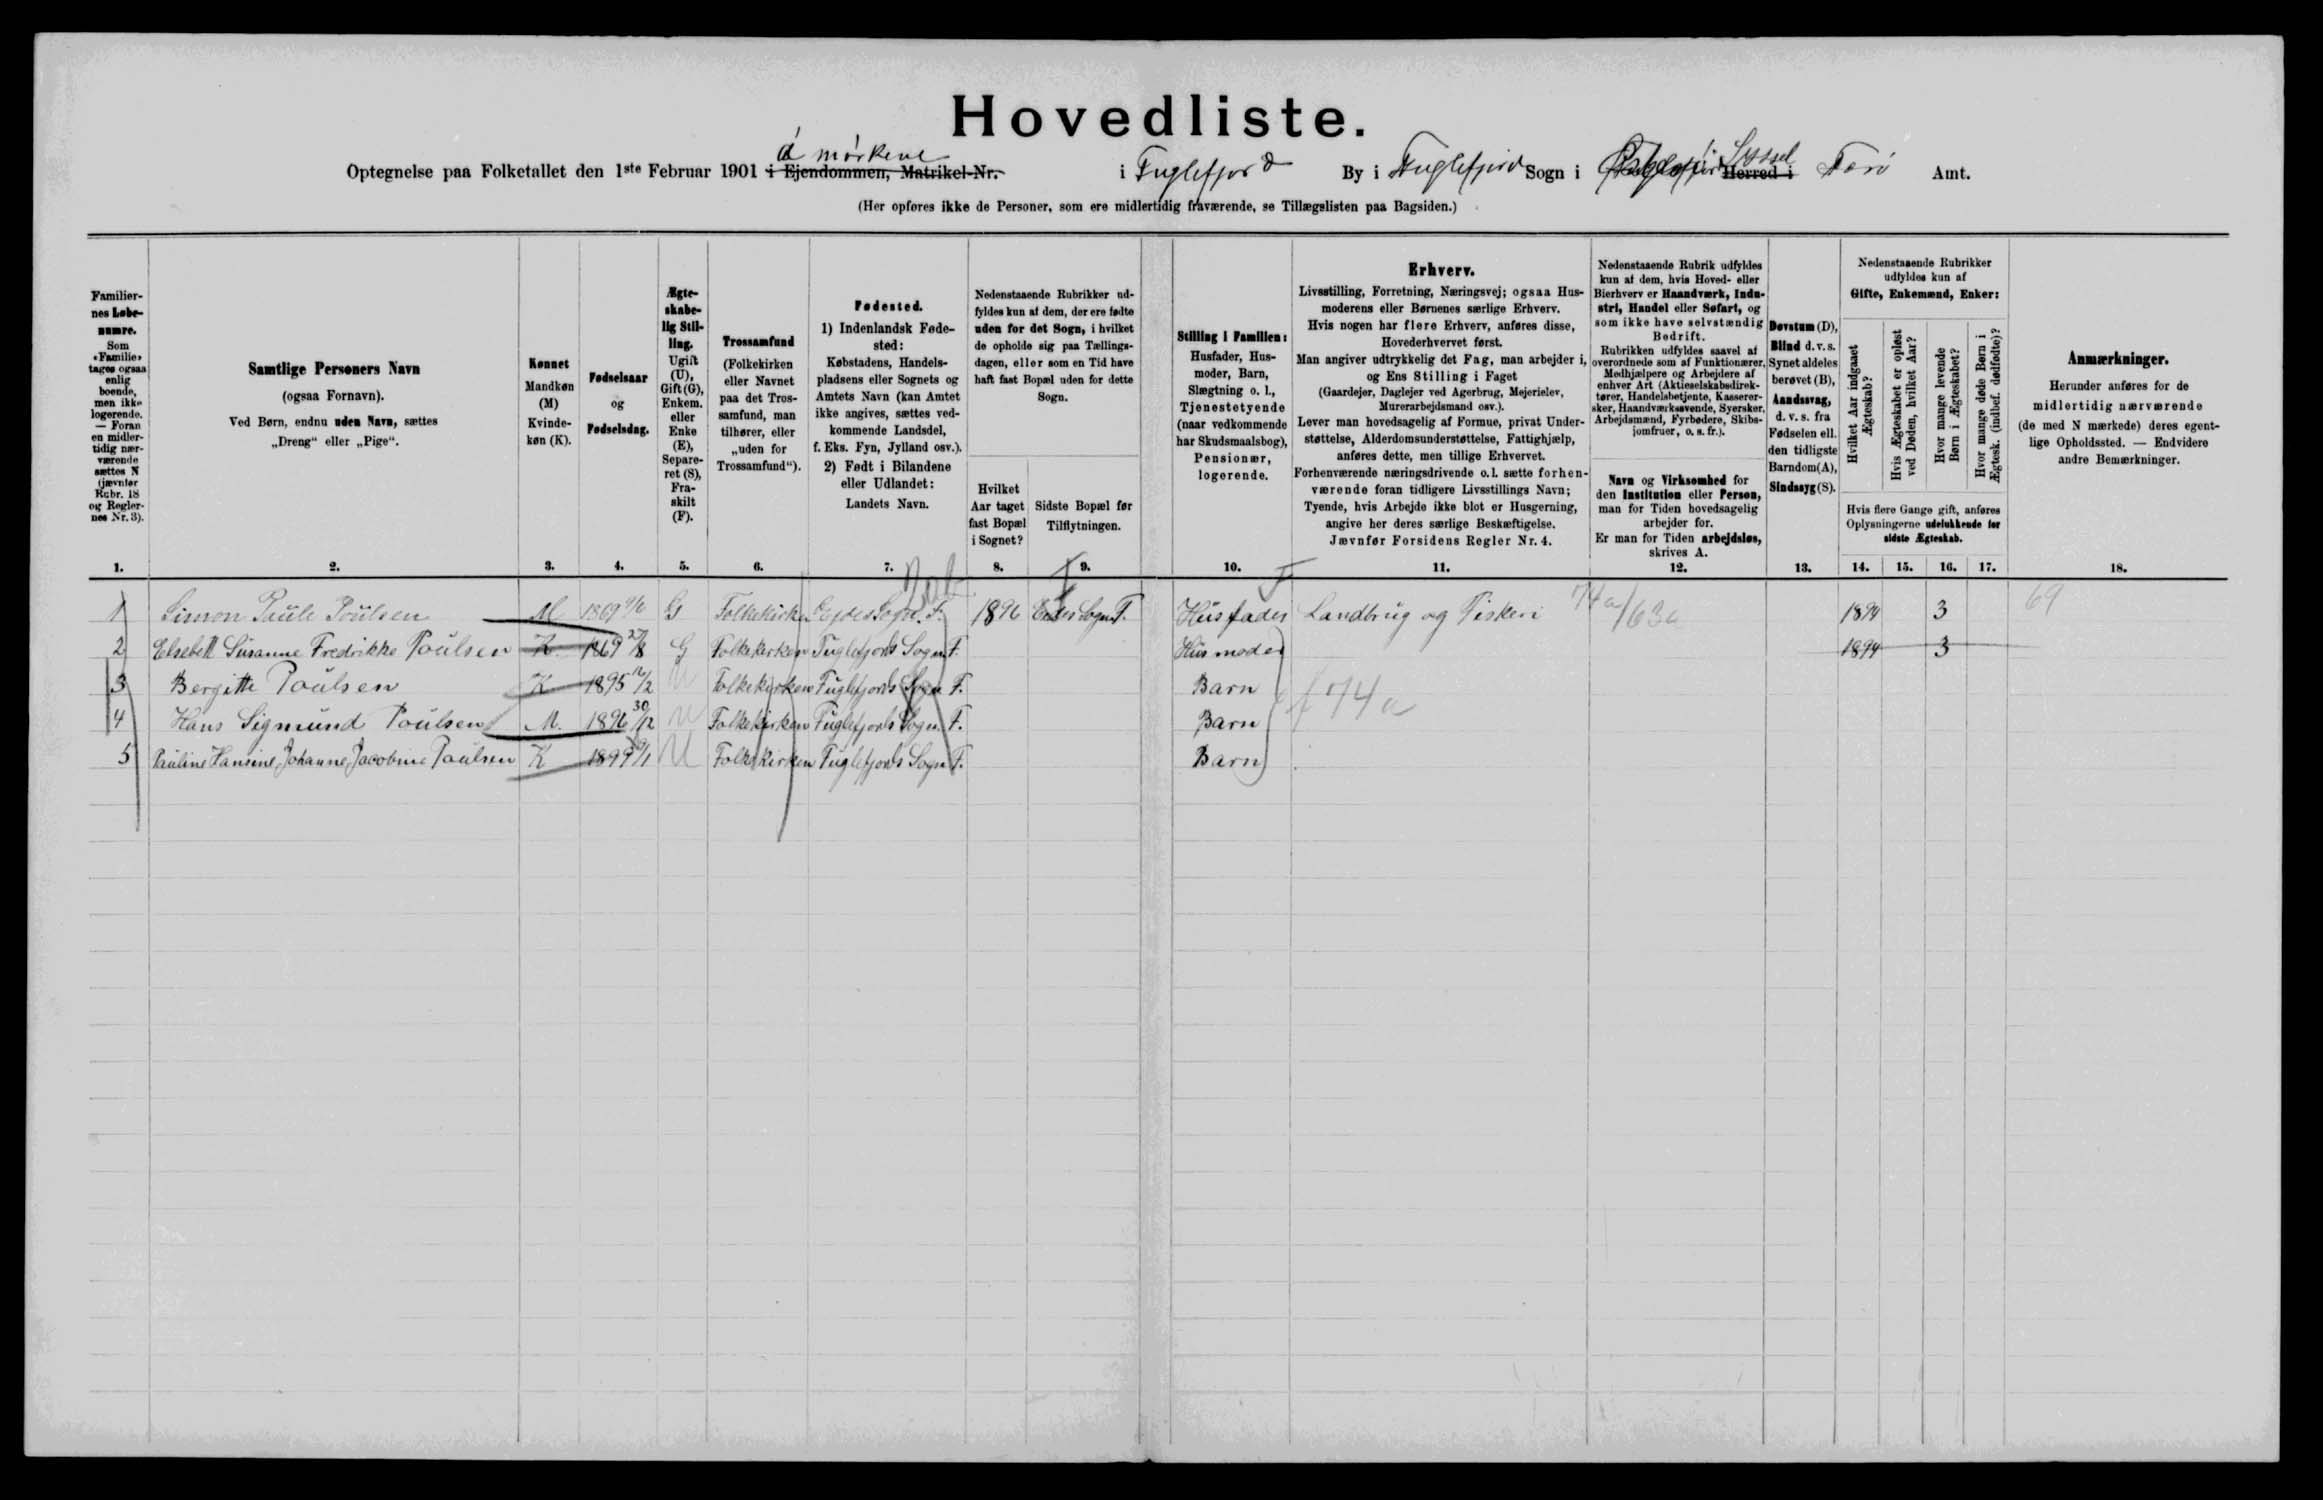 Hovedliste.
á mörkene
Optegnelse paa Folketallet den 1ste Februar 1901 i Ejendommen, Matrikel-Nr. i Fuglefjord By i Fuglefjord Sogn i Syssel Herred i Færö Amt.
(Her opføres ikke de Personer, som ere midlertidig fraværende, se Tillægslisten paa Bagsiden.)
Familiernes Løbenumre.
Som «Familie» tages ogsaa enlig boende, men ikke logerende. — Foran en midlertidig nærværende sættes N (jævnfør Rubr. 18 og Reglernes Nr. 3).
Samtlige Personers Navn
(ogsaa Fornavn).
Ved Børn, endnu uden Navn, sættes
„Dreng“ eller „Pige“.
Kønnet
Mandkøn (M)
Kvindekøn (K).
Fødselsaar
og
Fødselsdag.
Ægteskabelig Stilling.
Ugift (U), Gift (G), Enkem. eller Enke (E), Separeret (S), Fraskilt (F).
Trossamfund
(Folkekirken eller Navnet paa det Trossamfund, man tilhører, eller „uden for Trossamfund“).
Fødested.
1) Indenlandsk Fødested:
Købstadens, Handelspladsens eller Sognets og Amtets Navn (kan Amtet ikke angives, sættes vedkommende Landsdel, f. Eks. Fyn, Jylland osv.).
2) Født i Bilandene eller Udlandet:
Landets Navn.
Nedenstaaende Rubrikker udfyldes kun af dem, der ere fødte uden for det Sogn, i hvilket de opholde sig paa Tællingsdagen, eller som en Tid have haft fast Bopæl uden for dette Sogn.
Hvilket Aar taget fast Bopæl i Sognet?
Sidste Bopæl før Tilflytningen.
Stilling i Familien:
Husfader, Husmoder, Barn, Slægtning o. l., Tjenestetyende (naar vedkommende har Skudsmaalsbog), Pensionær, logerende.
Erhverv.
Livsstilling, Forretning, Næringsvej; ogsaa Husmoderens eller Børnenes særlige Erhverv.
Hvis nogen har flere Erhverv, anføres disse, Hovederhvervet først.
Man angiver udtrykkelig det Fag, man arbejder i, og Ens Stilling i Faget
(Gaardejer, Daglejer ved Agerbrug, Mejerielev, Murerarbejdsmand osv.).
Lever man hovedsagelig af Formue, privat Understøttelse, Alderdomsunderstøttelse, Fattighjælp, anføres dette, men tillige Erhvervet.
Forhenværende næringsdrivende o. l. sætte forhenværende foran tidligere Livsstillings Navn;
Tyende, hvis Arbejde ikke blot er Husgerning, angive her deres særlige Beskæftigelse.
Jævnfør Forsidens Regler Nr. 4.
Nedenstaaende Rubrik udfyldes kun af dem, hvis Hoved- eller Bierhverv er Haandværk, Industri, Handel eller Søfart, og som ikke have selvstændig Bedrift.
Rubrikken udfyldes saavel af overordnede som af Funktionærer, Medhjælpere og Arbejdere af enhver Art (Aktieselskabsdirektører, Handelsbetjente, Kasserersker, Haandværkssvende, Syersker, Arbejdsmænd, Fyrbødere, Skibsjomfruer, o. s. fr.).
Navn og Virksomhed for den Institution eller Person, man for Tiden hovedsagelig arbejder for.
Er man for Tiden arbejdsløs, skrives A.
Døvstum (D), Blind d. v. s. Synet aldeles berøvet (B), Aandssvag, d. v. s. fra Fødselen ell. den tidligste Barndom (A), Sindssyg (S).
Nedenstaaende Rubrikker udfyldes kun af
Gifte, Enkemænd, Enker:
Hvilket Aar indgaaet Ægteskab?
Hvis Ægteskabet er opløst ved Døden, hvilket Aar?
Hvor mange levende Børn i Ægteskabet?
Hvor mange døde Børn i Ægtesk. (indbef. dødfødte)?
Hvis flere Gange gift, anføres Oplysningerne udelukkende for sidste Ægteskab.
Anmærkninger.
Herunder anføres for de midlertidig nærværende (de med N mærkede) deres egentlige Opholdssted. — Endvidere andre Bemærkninger.
1. 2. 3. 4. 5. 6. 7. 8. 9. 10. 11. 12. 13. 14. 15. 16. 17. 18.
1 Simon Paule Poulsen M 1869 G Folkekirken Ejdes Sogn. F. 1896 Ejdes Sogn F. Husfader Landbrug og Fiskeri 74a/63a 1894 3 69
2 Elsebett Susanne Fredrikke Poulsen K 1869 27/8 G Folkekirken Fuglefjords Sogn F. Husmoder 1894 3
3 Bergitte Poulsen K 1895 12/2 U Folkekirken Fuglefjords Sogn F. Barn f 74a
4 Hans Sigmund Poulsen M. 1896 30/12 U Folkekirken Fuglefjords Sogn. F. Barn
5 Pauline Hansine Johanne Jacobine Poulsen K 1899 U Folkekirken Fuglefjords Sogn F. Barn